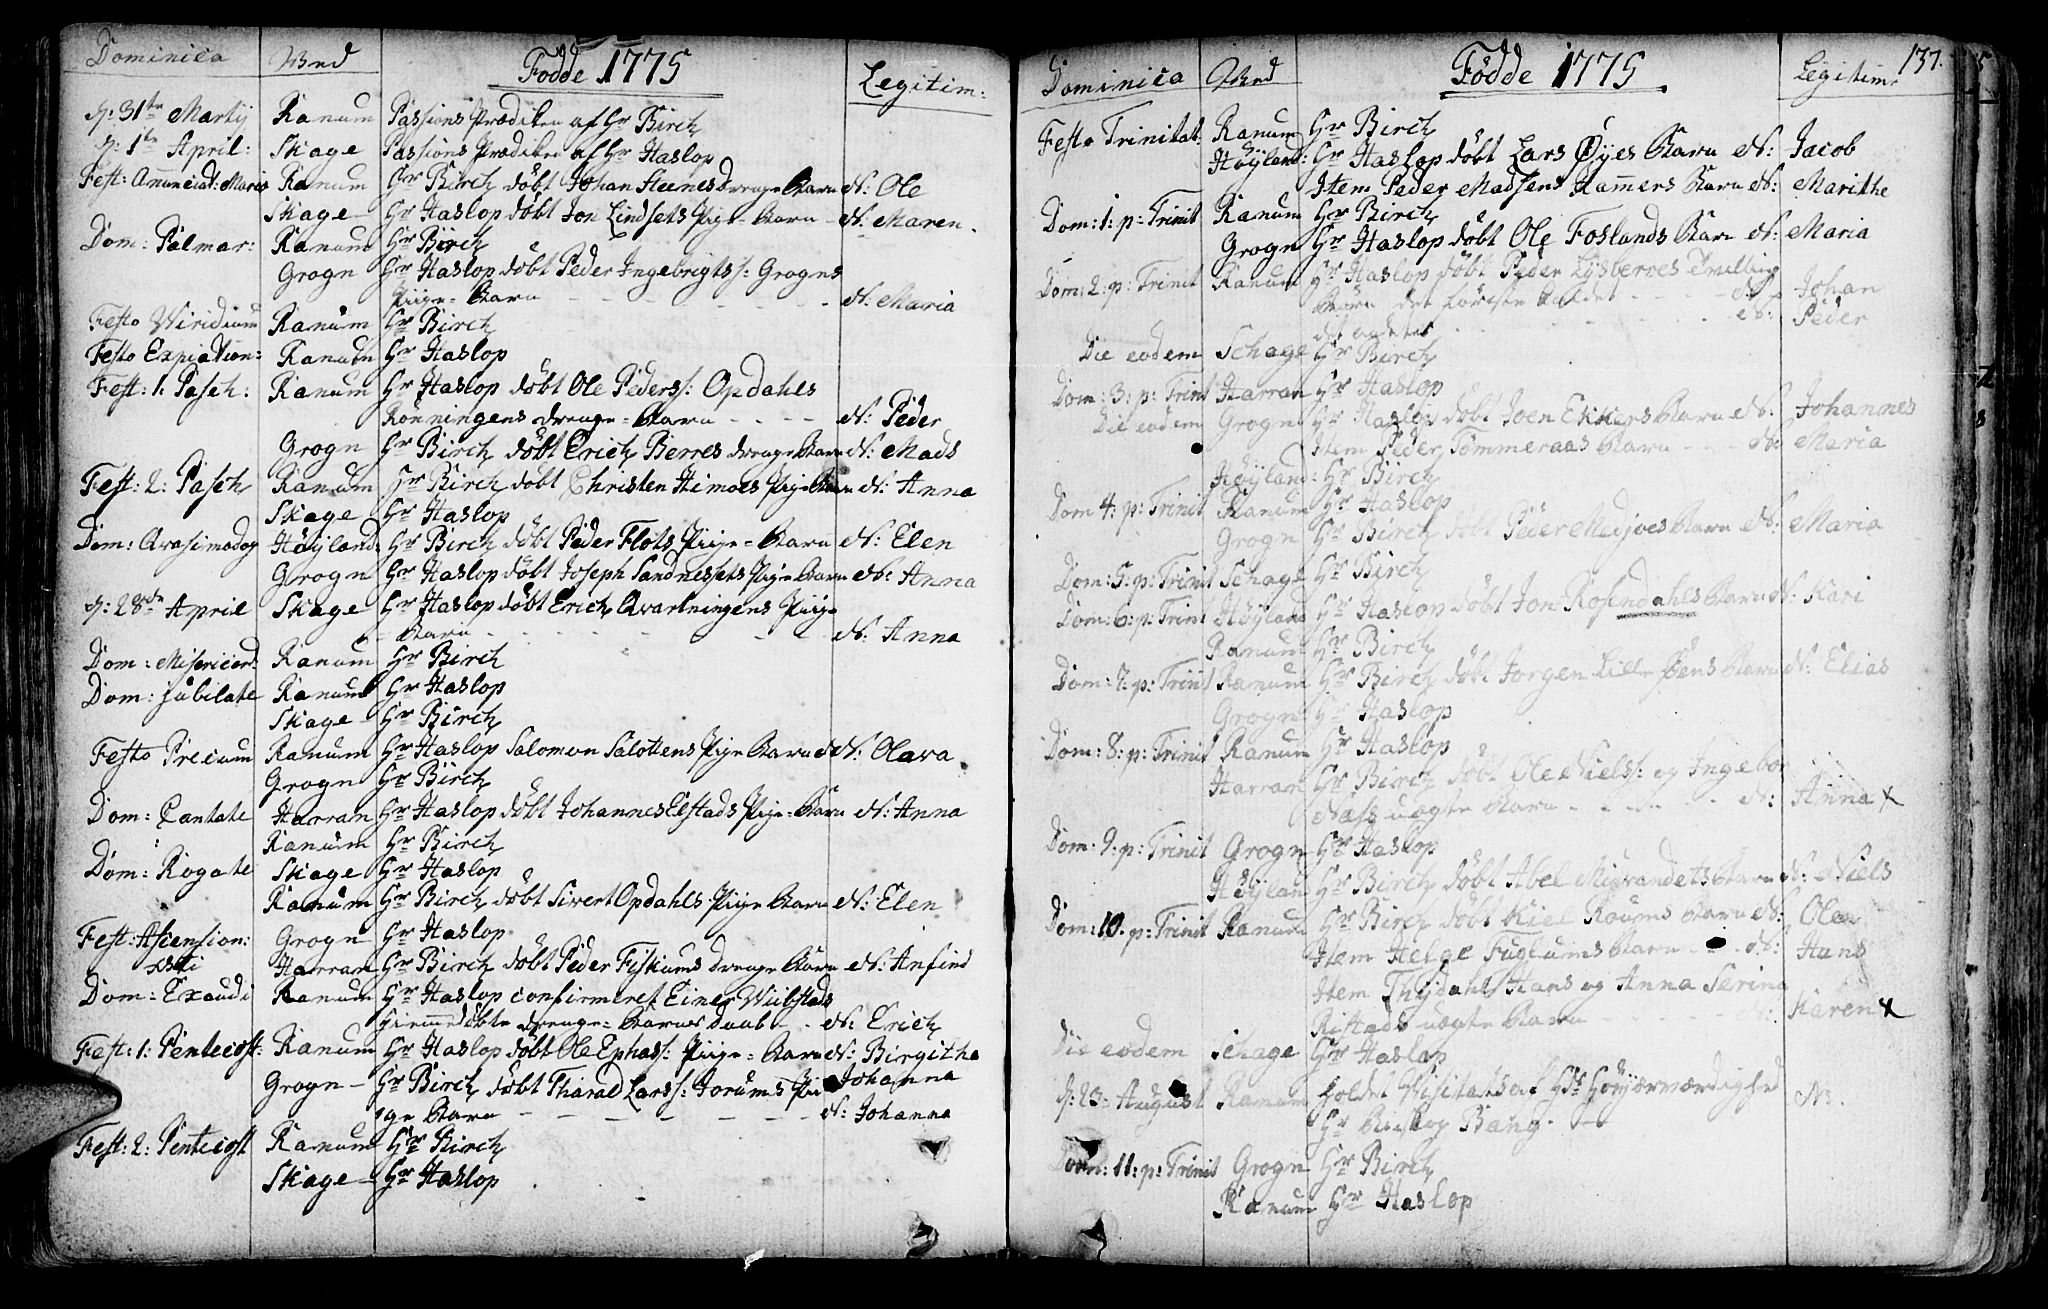 Dominica Wed Fødde 1775 Legitim:
d: 31te Martij Ranum Passions Prædiken af Hr Birch
d: 1te April: Skage Passions Prædiken af Hr Haslop
Fest: Anunciat: Mariæ Ranum Hr Birch döbt Johan Steenes drenge Barn N: Ole
Skage Hr Haslop döbt Jon Lindsets Pige-Barn N: Maren.
Dom: Palmar: Ranum Hr Birch
Grogn Hr Haslop döbt Peder Ingebrigts: Grogns
Piige-Barn N: Maria
Festo Viridium Ranum Hr Birch
Festo Expiation: Ranum Hr Haslop
Fest: 1. Pasch: Ranum Hr Haslop döbt Ole Peders: Opdahls
Rönningens drenge-Barn N: Peder
Grogn Hr Birch döbt Erich Berres drenge Barn N: Mads
Fest: 2: Pasch Ranum Hr Birch döbt Christen Himoes Pige Barn N: Anna
Skage Hr Haslop
Dom: Qvasimodog Höyland: Hr Birch döbt Peder Flots Piige-Barn N: Elen
Grogn Hr Haslop döbt Joseph Sandnessets Pige Barn N: Anna
d: 28de April Skage Hr Haslop döbt Erich Qvartningens Piige
Barn N: Anna
Dom: Misericord: Ranum Hr Birch
Dom: Jubilate Ranum Hr Haslop
Skage Hr Birch
Festo Precum Ranum Hr Haslop Salomon Salottens Pige Barn N: Olava
Grogn Hr Birch
Dom: Cantate Harran Hr Haslop döbt Johannes Elstads Pige-Barn N: Anna
Ranum Hr Birch
Dom: Rogate Skage Hr Haslop
Ranum Hr Birch döbt Sivert Opdahls Piige Barn N: Elen
Fest: Ascension: Grogn Hr Haslop
Xsti Harran Hr Birch döbt Peder Fiskums drenge Barn N: Anfind
Dom: Exaudi Ranum Hr Haslop confirmeret Einer Viibstads
hiemmedöbte drenge-Barnes Daab N: Erich
Fest: 1: Pentecost: Ranum Hr Haslop döbt Ole Ephas: Piige-Barn N: Birgitha
Grogn Hr Birch döbt Tharad Lars: Jorums Pii Johanna
ge Barn N: Johanna
Fest: 2: Pentecost Ranum Hr Birch
Skage Hr Haslop
137.
Dominica Wed Fødde 1775 Legitim:
Festo Trinitat: Ranum Hr Birch
Höyland: Hr Haslop döbt Lars Øyes Barn N: Jacob
Item Peder Madsens Hammers Barn N: Marithe
Dom: 1. p: Trinit Ranum Hr Birch
Grogn Hr Haslop döbt Ole Foslands Barn N: Maria
Dom: 2. p: Trinit Ranum Hr Haslop döbt Peder Lysberres Tvilling
Börn det föreste kaldet N: Johan
det andet N: Peder
Die eodem Schage Hr Birch
Dom: 3: p: Trinit Harran Hr Haslop
Die eodem Grogn Hr Haslop döbt Joen Ekkers Barn N: Johannes
Item Peder Tömmeraas Barn N: Maria
Höyland: Hr Birch
Dom 4: p: Trinit Ranum Hr Haslop
Grogn Hr Birch döbt Peder Medjoes Barn N: Maria
Dom: 5: p: Trinit Schage Hr Birch
Dom: 6: p: Trinit Höyland Hr Haslop döbt Jon Rosendahls Barn N: Kari
Ranum Hr Birch
Dom: 7: p: Trinit Ranum Hr Birch döbt Jorgen Lille Øens Barn N: Elias
Grogn Hr Haslop
Dom: 8: p: Trinit Ranum Hr Haslop
Harran Hr Birch döbt Ole Niels: og Ingebor
Næss uægte Barn N: Anna x
Dom: 9: p: Trinit Grogn Hr Haslop
Höylan Hr Birch döbt Abel Barn N: Niels
Dom: 10. p: Trinit Ranum Hr Birch döbt Kiel Roums Barn N: Ole
Item Helge Fuglums Barn N: Hans
Item Hans og Anna Serina
Ristads uægte Barn N: Karen x
Die eodem Schage Hr Haslop
d: 23: August Ranum holdet Visitats af Hds Höyærværdighed N:
Hr Biskop Bang.
Dom: 11: p: Trinit Grogn Hr Birch
Ranum Hr Haslop